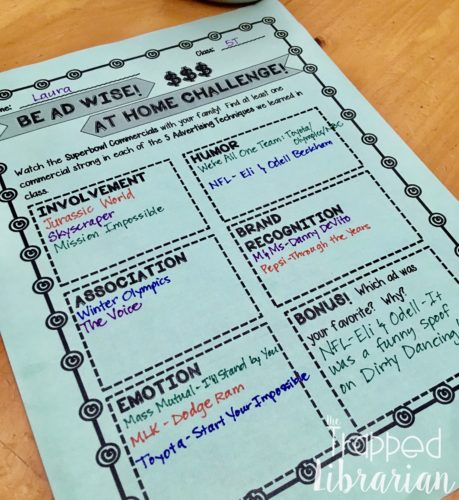 Laura
Class: 5T
BE AD WISE!
$$$
AT HOME CHALLENGE!
Watch the Superbowl Commercials with your family! Find at least one
commercial strong in each of the 5 Advertising Techniques we learned in
class.
INVOLVEMENT
Jurassic World
Skyscraper
Mission Impossible
HUMOR
We're All One Team: Toyota/
NFL - Eli & Odell Beckham
ASSOCIATION
Winter Olympics
The Voice
BRAND
RECOGNITION
M&Ms-Danny DeVito
Pepsi-Through the Years
EMOTION
Mass Mutual-I'll Stand by You
MLK - Dodge Ram
Toyota-Start Your Impossible
BONUS! Which ad was
your favorite? Why?
NFL-Eli & Odell-It
was a funny spoof
on Dirty Dancing
the
Trapped
Librarian